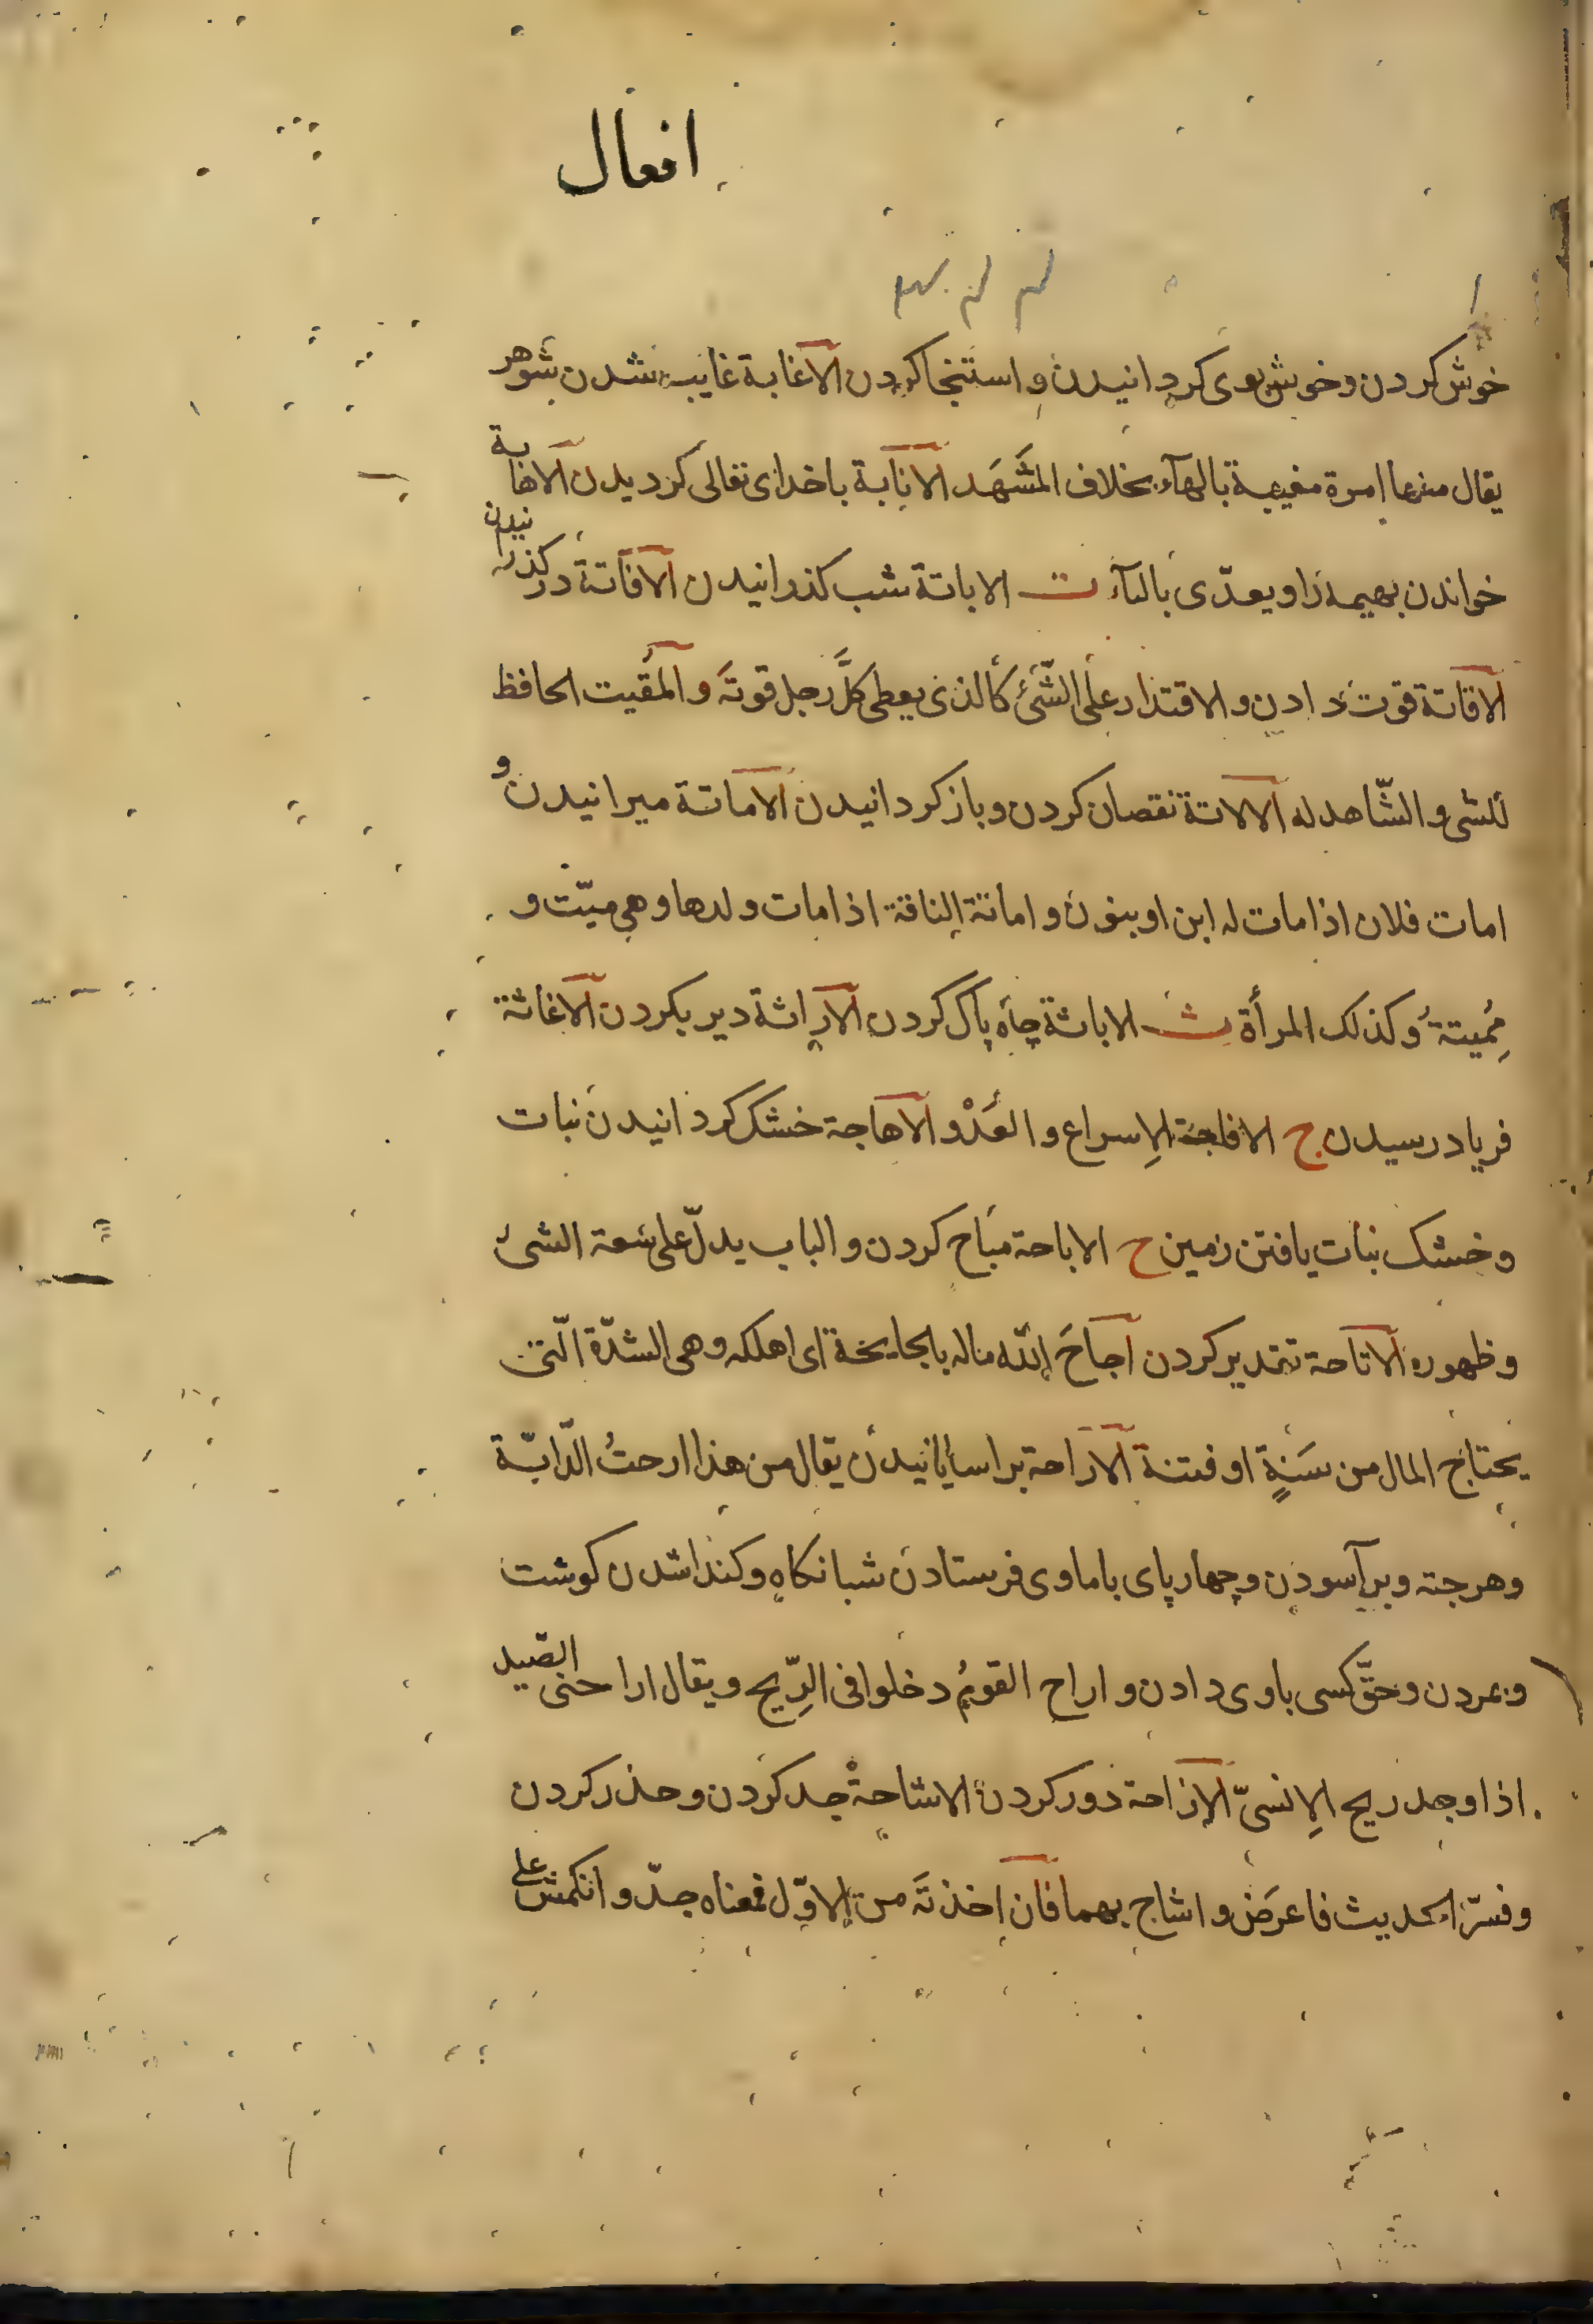 افعال
خوش کردن و خوش بوی کردانیدن و استنجا کردن الاغابة غایب شدن شوهر
یقال منها امرة مغیبة بالهآء بخلاف المُشَهَد الانابة باخدای تعالی کردیدن الاهابة
خواندن بهیمه را و یعدّی بالبآء ت الاباتة شب کذرانیدن الافاتة در کذرانیدن
الاقاتة قوت دادن و الاقتدار علی الشّئ کالذی یعطی کلَّ رجل قوتَه و المُقیت الحافظ
للشی و الشّاهد له الالاتة نقصان کردن و باز کردانیدن الاماتة میرانیدن و
امات فلان اذا مات له ابن او بنون و اماتة الناقة اذا مات ولدها و هی میّت و
مُمیتةٌ و کذلک المرأة ث الاباثة چاه پاک کردن الاراثة دیر بکردن الاغاثة
فریاد رسیدن ج الافاجة الاِسراع و العَدْو الاهاجة خشک کردانیدن نبات
و خشک نبات یافتن زمین ح الاباحة مباح کردن و الباب یدلّ علی سعة الشئ
و ظهوره الاتاحة تقدیر کردن اجاحَ اللّه ماله بالجایحة ای اهلکه و هی الشدّة الّتی
یجتاح المال من سَنةٍ او فتنة الاراحة براسایانیدن یقال من هذا ارحتُ الدّابّة
و هر جته و برآسودن و چهارپای باماوی فرستادن شبانکاه و کندا شدن کوشت
و بمردن و حقّ کسی باوی دادن و اراح القومُ دخلوا فی الرِّیح و یقال اراحنی الصّید
اذا وجد ریح الاِنسیّ الازاحة دور کردن الاشاحةْ جد کردن و حذر کردن
و فسّر الحدیث فاعرَض و اشاح بهما فان اخذتَه من الاوّل فمعناه جدّ و انکمش علی